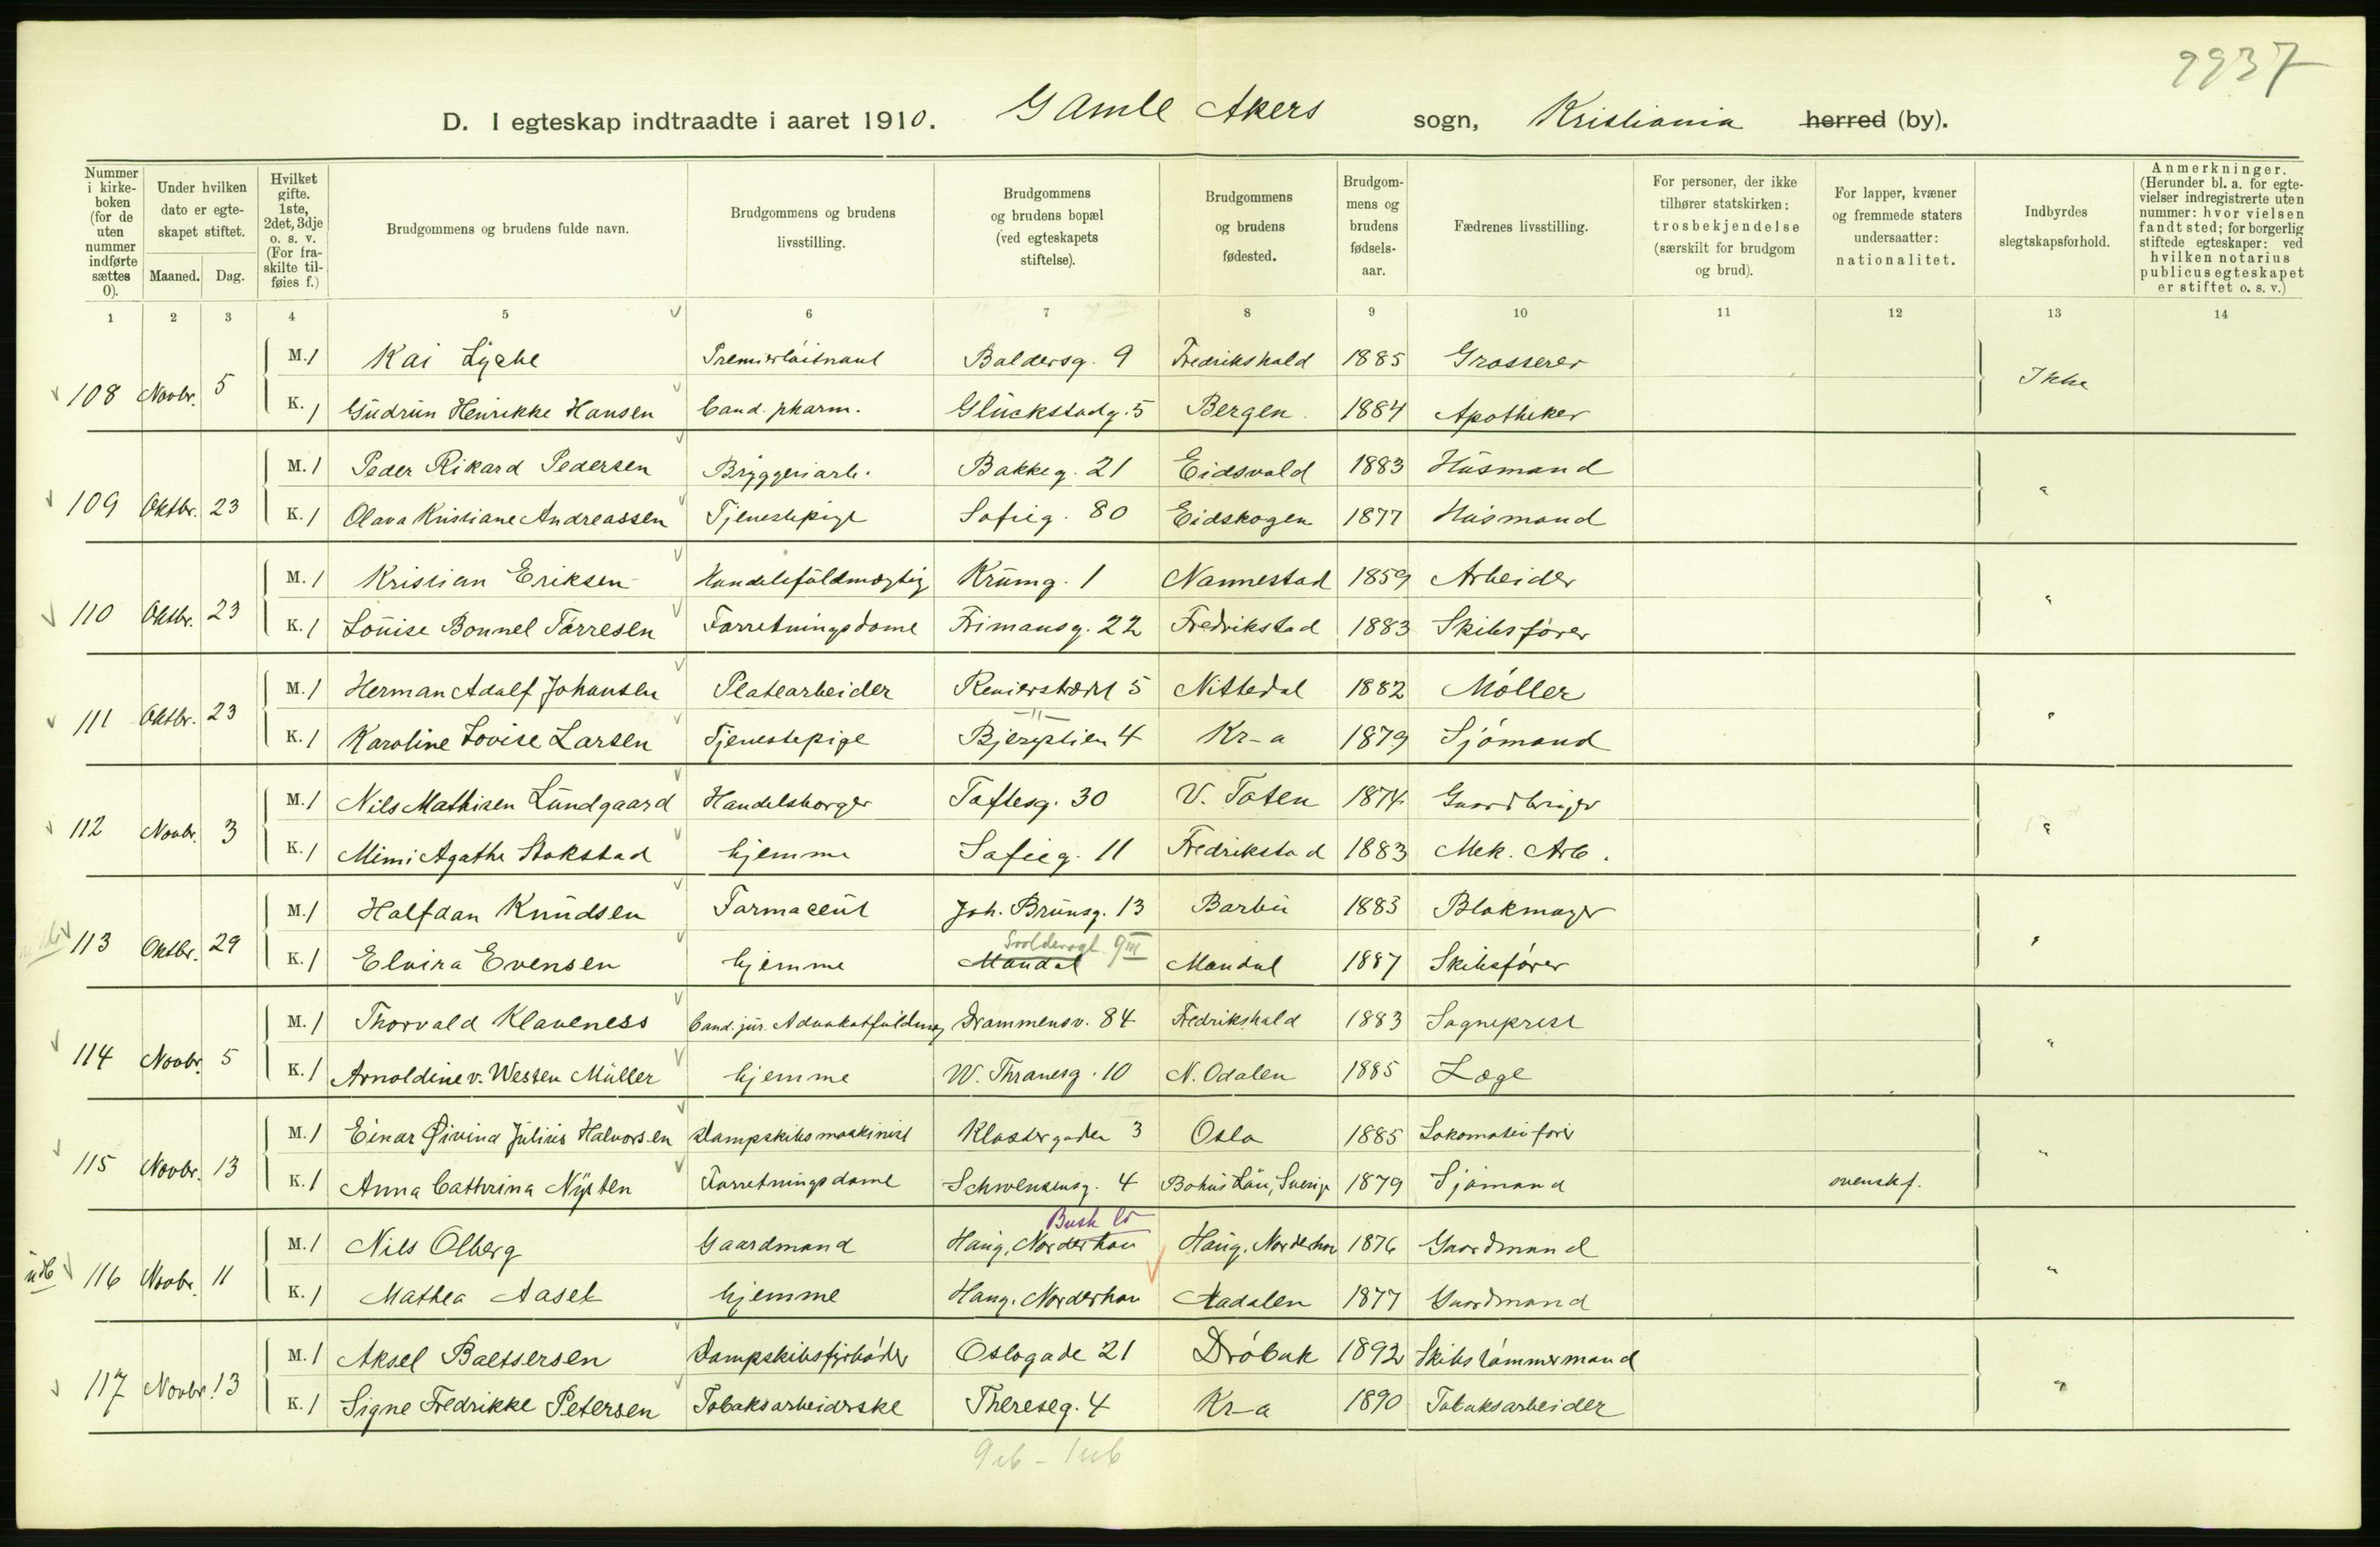 9937
D. I egteskap indtraadte i aaret 1910. Gamle Akers sogn, Kristiania herred (by).
Nummer i kirke-boken (for de uten nummer indførte sættes 0).
Under hvilken dato er egte-skapet stiftet.
Maaned. Dag.
Hvilket gifte. 1ste, 2det, 3dje o. s. v. (For fra-skilte til-føies f.)
Brudgommens og brudens fulde navn.
Brudgommens og brudens livsstilling.
Brudgommens og brudens bopæl (ved egteskapets stiftelse).
Brudgommens og brudens fødested.
Brudgom-mens og brudens fødsels-aar.
Fædrenes livsstilling.
For personer, der ikke tilhører statskirken: trosbekjendelse (særskilt for brudgom og brud).
For lapper, kvæner og fremmede staters undersaatter: nationalitet.
Indbyrdes slegtskapsforhold.
Anmerkninger. (Herunder bl. a. for egte-vielser indregistrerte uten nummer: hvor vielsen fandt sted; for borgerlig stiftede egteskaper: ved hvilken notarius publicus egteskapet er stiftet o. s. v.)
1 2 3 4 5 6 7 8 9 10 11 12 13 14
M. 1 Kai Lyche Premierløitnant Baldersg. 9 Fredrikshald 1885 Grosserer
108 Novbr. 5 Ikke
K. 1 Gudrun Henrikke Hansen Cand. pharm. Glückstadg. 5 Bergen 1884 Apotheker
M. 1 Peder Rikard Pedersen Bryggeriarb. Bakkeg. 21 Eidsvold 1883 Husmand
109 Oktbr. 23 "
K. 1 Olava Kristiane Andreassen Tjenestepige Sofieg. 80 Eidskogen 1877 Husmand
M. 1 Kristian Eriksen Handelsfuldmægtig Krumg. 1 Nannestad 1859 Arbeider
110 Oktbr. 23 "
K. 1 Louise Bonnel Tørresen Forretningsdame Frimansg. 22 Fredrikstad 1883 Skibsfører
M. 1 Herman Adolf Johansen Platearbeider Renierstrædet 5 Nittedal 1882 Møller
111 Oktbr. 23 -"- "
K. 1 Karoline Lovise Larsen Tjenestepige 4 Kr-a 1879 Sjømand
M. 1 Nils Mathisen Lundgaard Handelsborger Toftesg. 30 V. Toten 1874 Gaardbruger
112 Novbr. 3 "
K. 1 Mimi Agathe Stokstad hjemme Sofieg. 11 Fredrikstad 1883 Mek. Arb.
M. 1 Halfdan Knudsen Farmaceut Joh. Brunsg. 13 Barbu 1883 Blokmager
113 Oktbr. 29 Svoldergt. 9 III "
K. 1 Elvira Evensen hjemme Mandal Mandal 1887 Skibsfører
M. 1 Thorvald Klaveness Cand. jur. Advokatfuldmæg Drammensv. 84 Fredrikshald 1883 Sogneprest
114 Novbr. 5 "
K. 1 Arnoldine v. Westen Müller hjemme W. Thranesg. 10 N. Odalen 1885 Læge
M. 1 Einar Øivind Julius Halvorsen Dampskibsmaskinist Klostergaden 3 Oslo 1885 Lokomotivfører
115 Novbr. 13 "
K. 1 Anna Cathrina Nysten Forretningsdame Schwensensg. 4 Bohus Län, Sverige 1879 Sjømand svensk f.
Busk
M. 1 Nils Olberg Gaardmand Haug, Norderhov Haug, Norderhov 1876 Gaardmand
116 Novbr. 11 "
K. 1 Mathea Aaset hjemme Haug. Norderhov Aadalen 1877 Gaardmand
M. 1 Aksel Baltsersen Dampskibsfyrbøder Oslogade 21 Drøbak 1892 Skibstømmermand
117 Novbr. 13 "
K. 1 Signe Fredrikke Petersen Tobaksarbeiderske Thereseg. 4 Kr-a 1890 Tobaksarbeider